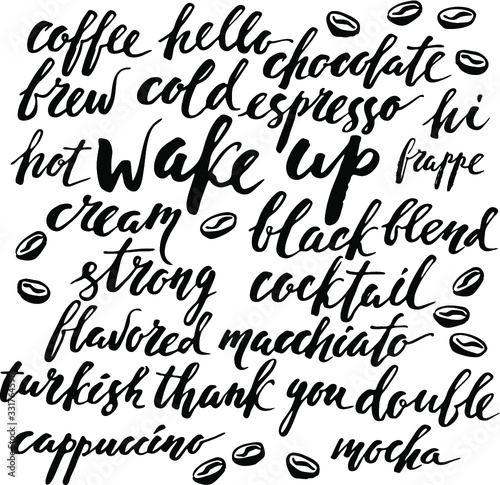 coffee hello chocolate
brew cold espresso hi
hot wake up frappe
cream black blend
strong cocktail
flavored macchiato
turkish thank you double
cappuccino mocha